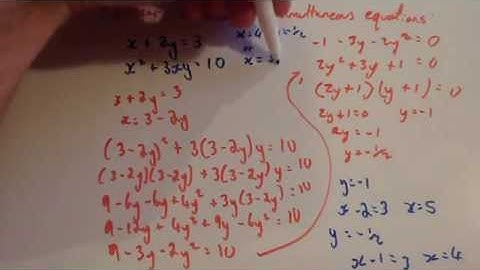 simultaneous equations:
x + 2y = 3
x² + 3xy = 10
x + 2y = 3
x = 3 - 2y
(3 - 2y)² + 3(3 - 2y)y = 10
(3 - 2y)(3 - 2y) + 3(3 - 2y)y = 10
9 - 6y - 6y + 4y² + 3y(3 - 2y) = 10
9 - 12y + 4y² + 9y - 6y² = 10
9 - 3y - 2y² = 10
x = 4
-½
or
x =
-1 - 3y - 2y² = 0
2y² + 3y + 1 = 0
(2y + 1)(y + 1) = 0
2y + 1 = 0 y = -1
2y = -1
y = -½
y = -1
x - 2 = 3 x = 5
y = -½
x - 1 = 3 x = 4